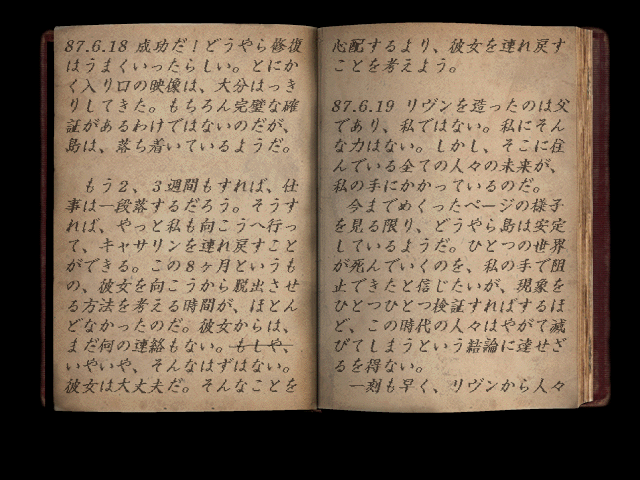 87.6.18 成功だ！どうやら修復
はうまくいったらしい。とにか
く入り口の映像は、大分はっき
りしてきた。もちろん完璧な確
証があるわけではないのだが、
島は、落ち着いているようだ。
もう２、３週間もすれば、仕
事は一段落するだろう。そうす
れば、やっと私も向こうへ行っ
て、キャサリンを連れ戻すこと
ができる。この８ヶ月というも
の、彼女を向こうから脱出させ
る方法を考える時間が、ほとん
どなかったのだ。彼女からは、
まだ何の連絡もない。もしや、
いやいや、そんなはずはない。
彼女は大丈夫だ。そんなことを
心配するより、彼女を連れ戻す
ことを考えよう。
87.6.19 リヴンを造ったのは父
であり、私ではない。私にそん
な力はない。しかし、そこに住
んでいる全ての人々の未来が、
私の手にかかっているのだ。
今までめくったページの様子
を見る限り、どうやら島は安定
しているようだ。ひとつの世界
が死んでいくのを、私の手で阻
止できたと信じたいが、現象を
ひとつひとつ検証すればするほ
ど、この時代の人々はやがて滅
びてしまうという結論に達せざ
るを得ない。
一刻も早く、リヴンから人々